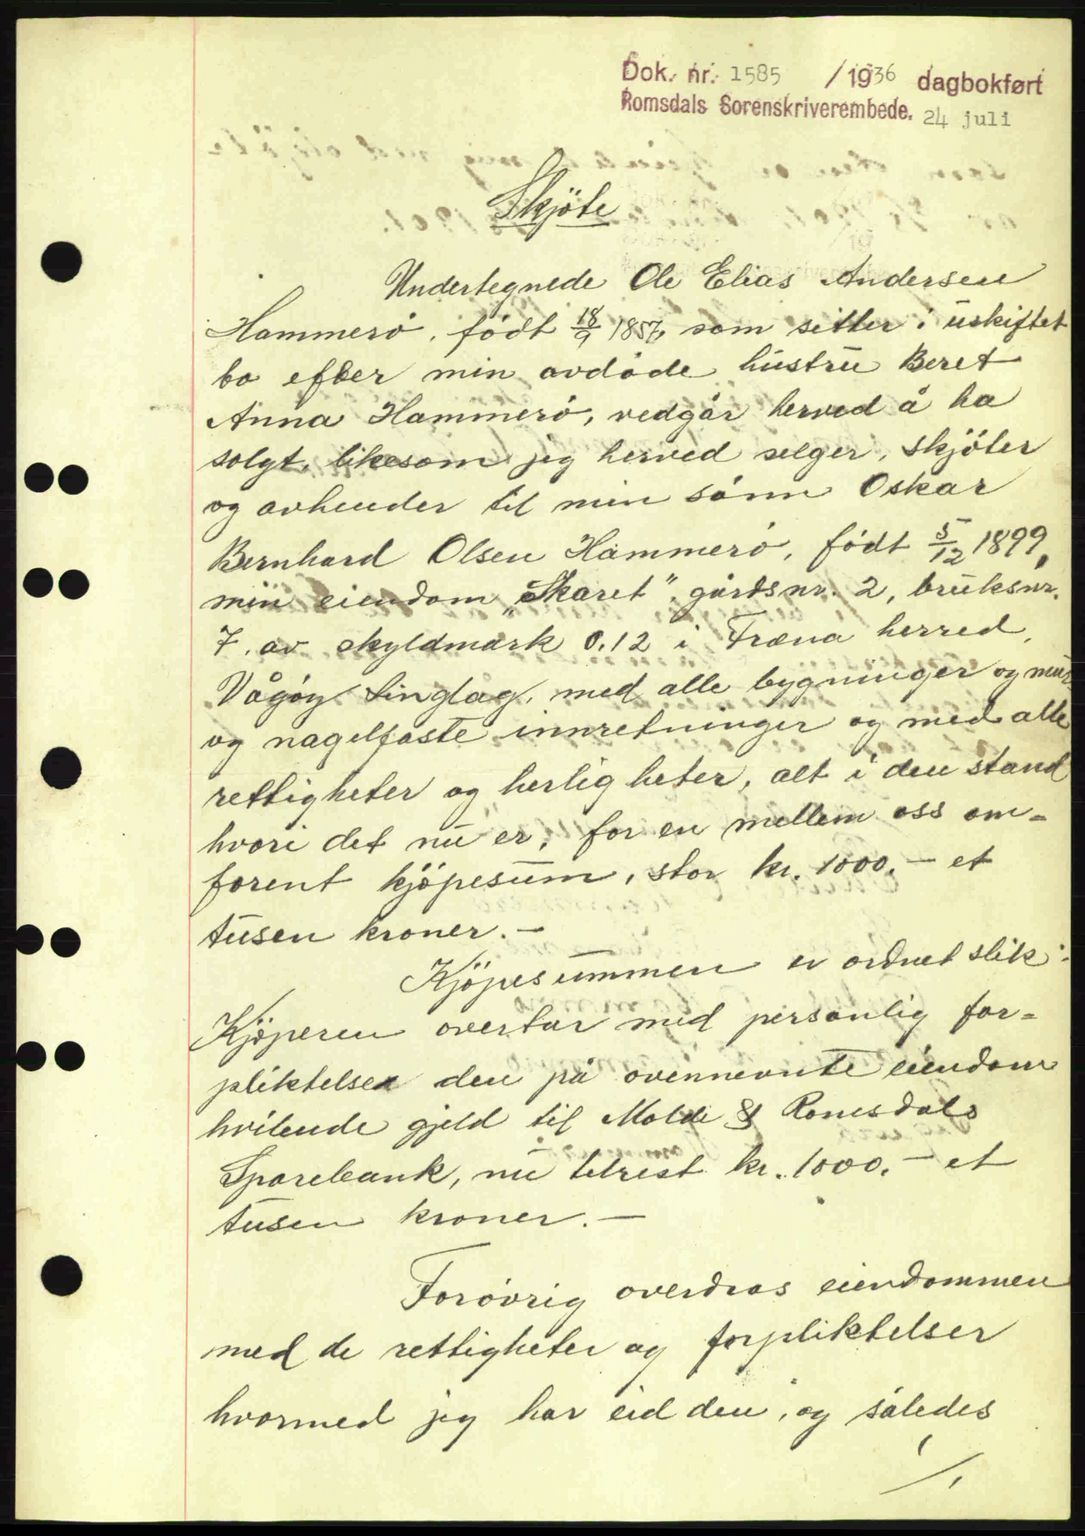 Dok. nr. 1585 /1936 dagbokført
Romsdals Sorenskriverembede. 24 juli
Skjöte
Undertegnede Ole Elias Andersen
Hammerö, födt 18/9 1857, som sitter i uskiftet
bo efter min avdöde hustru Beret
Anna Hammerö, vedgår herved å ha
solgt, likesom jeg herved selger, skjöter
og avhender til min sönn Oskar
Bernhard Olsen Hammerö, födt 5/12 1899,
min eiendom „Skaret" gårdsnr. 2, bruksnr.
7. av skyldmark 0.12 i Fræna herred,
Vågöy tinglag, med alle bygninger og mur
og nagelfaste innretninger og med alle
rettigheter og herligheter, alt i den stand
hvori det nu er, for en mellem oss om-
forent kjöpesum, stor kr. 1000.- et
tusen kroner.-
Kjöpesummen er ordnet slik:
Kjöperen overtar med personlig for-
pliktelse den på ovennevnte eiendom
hvilende gjeld til Molde & Romsdals
Sparebank, nu tilrest kr. 1000.- et
tusen kroner.-
Forövrig overdras eiendommen
med de rettigheter og forpliktelser
hvormed jeg har eid den, og således
/.